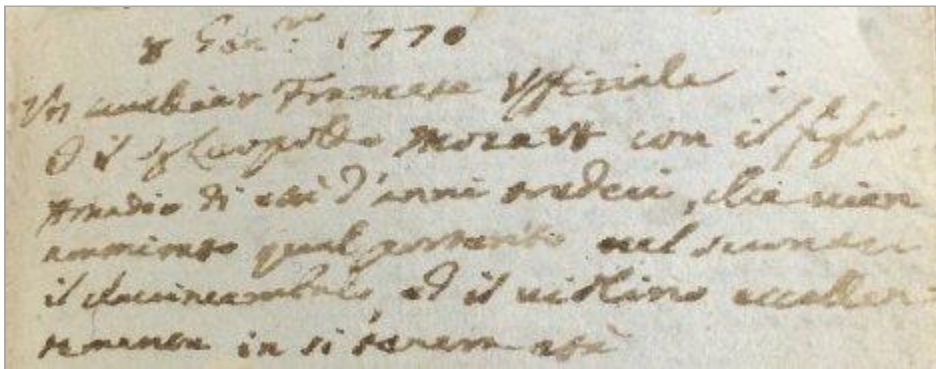 8 Gen.ro 1770
Un Francese Ufficiale :
Ed il Sig.r Leopoldo Mozart con il figlio
Amadio di età d'anni tredeci, che vien
ammirato qual portento nel suonar
il clavincembalo, ed il violino eccellen-
temente in sì tenera età